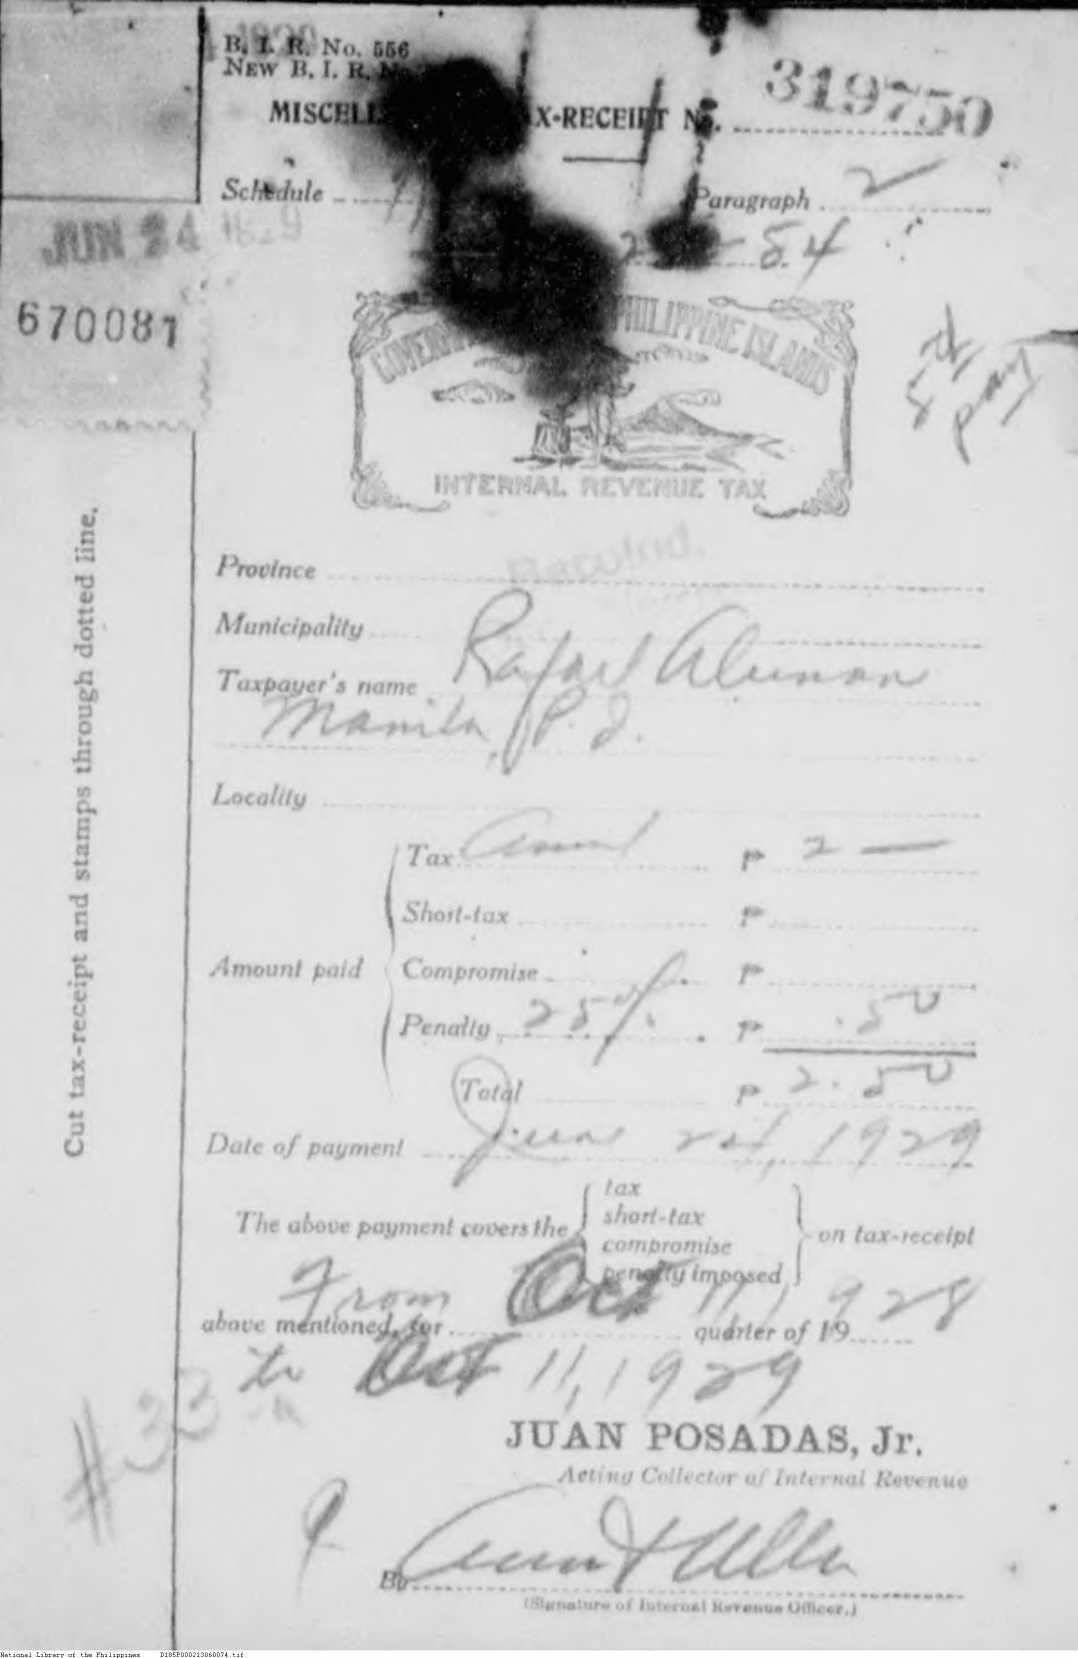 B. I. R. No. 556
NEW B. I. R.
X-RECEIPT No. 319750
Schedule
Paragraph 2
JUN 24 1929
84
670081
PHILIPPINE ISLANDS
5th
pay
INTERNAL REVENUE TAX
Province Bacolod.
Municipality
Taxpayer's name Rafael Alunan
Manila, P. I.
Locality
Cut tax-receipt and stamps through dotted line.
Amount paid
Tax P 2 —
Short-tax P
Compromise P
Penalty 25% P .50
Total P 2.50
Date of payment June 24, 1929
The above payment covers the
tax
short-tax
compromise
penalty imposed
on tax-receipt
From Oct 11, 1928
above mentioned, for quarter of 19
to Oct 11, 1929
#33
JUAN POSADAS, Jr.
Acting Collector of Internal Revenue
By
(Signature of Internal Revenue Officer.)
National Library of the Philippines D185P000213060074.tif